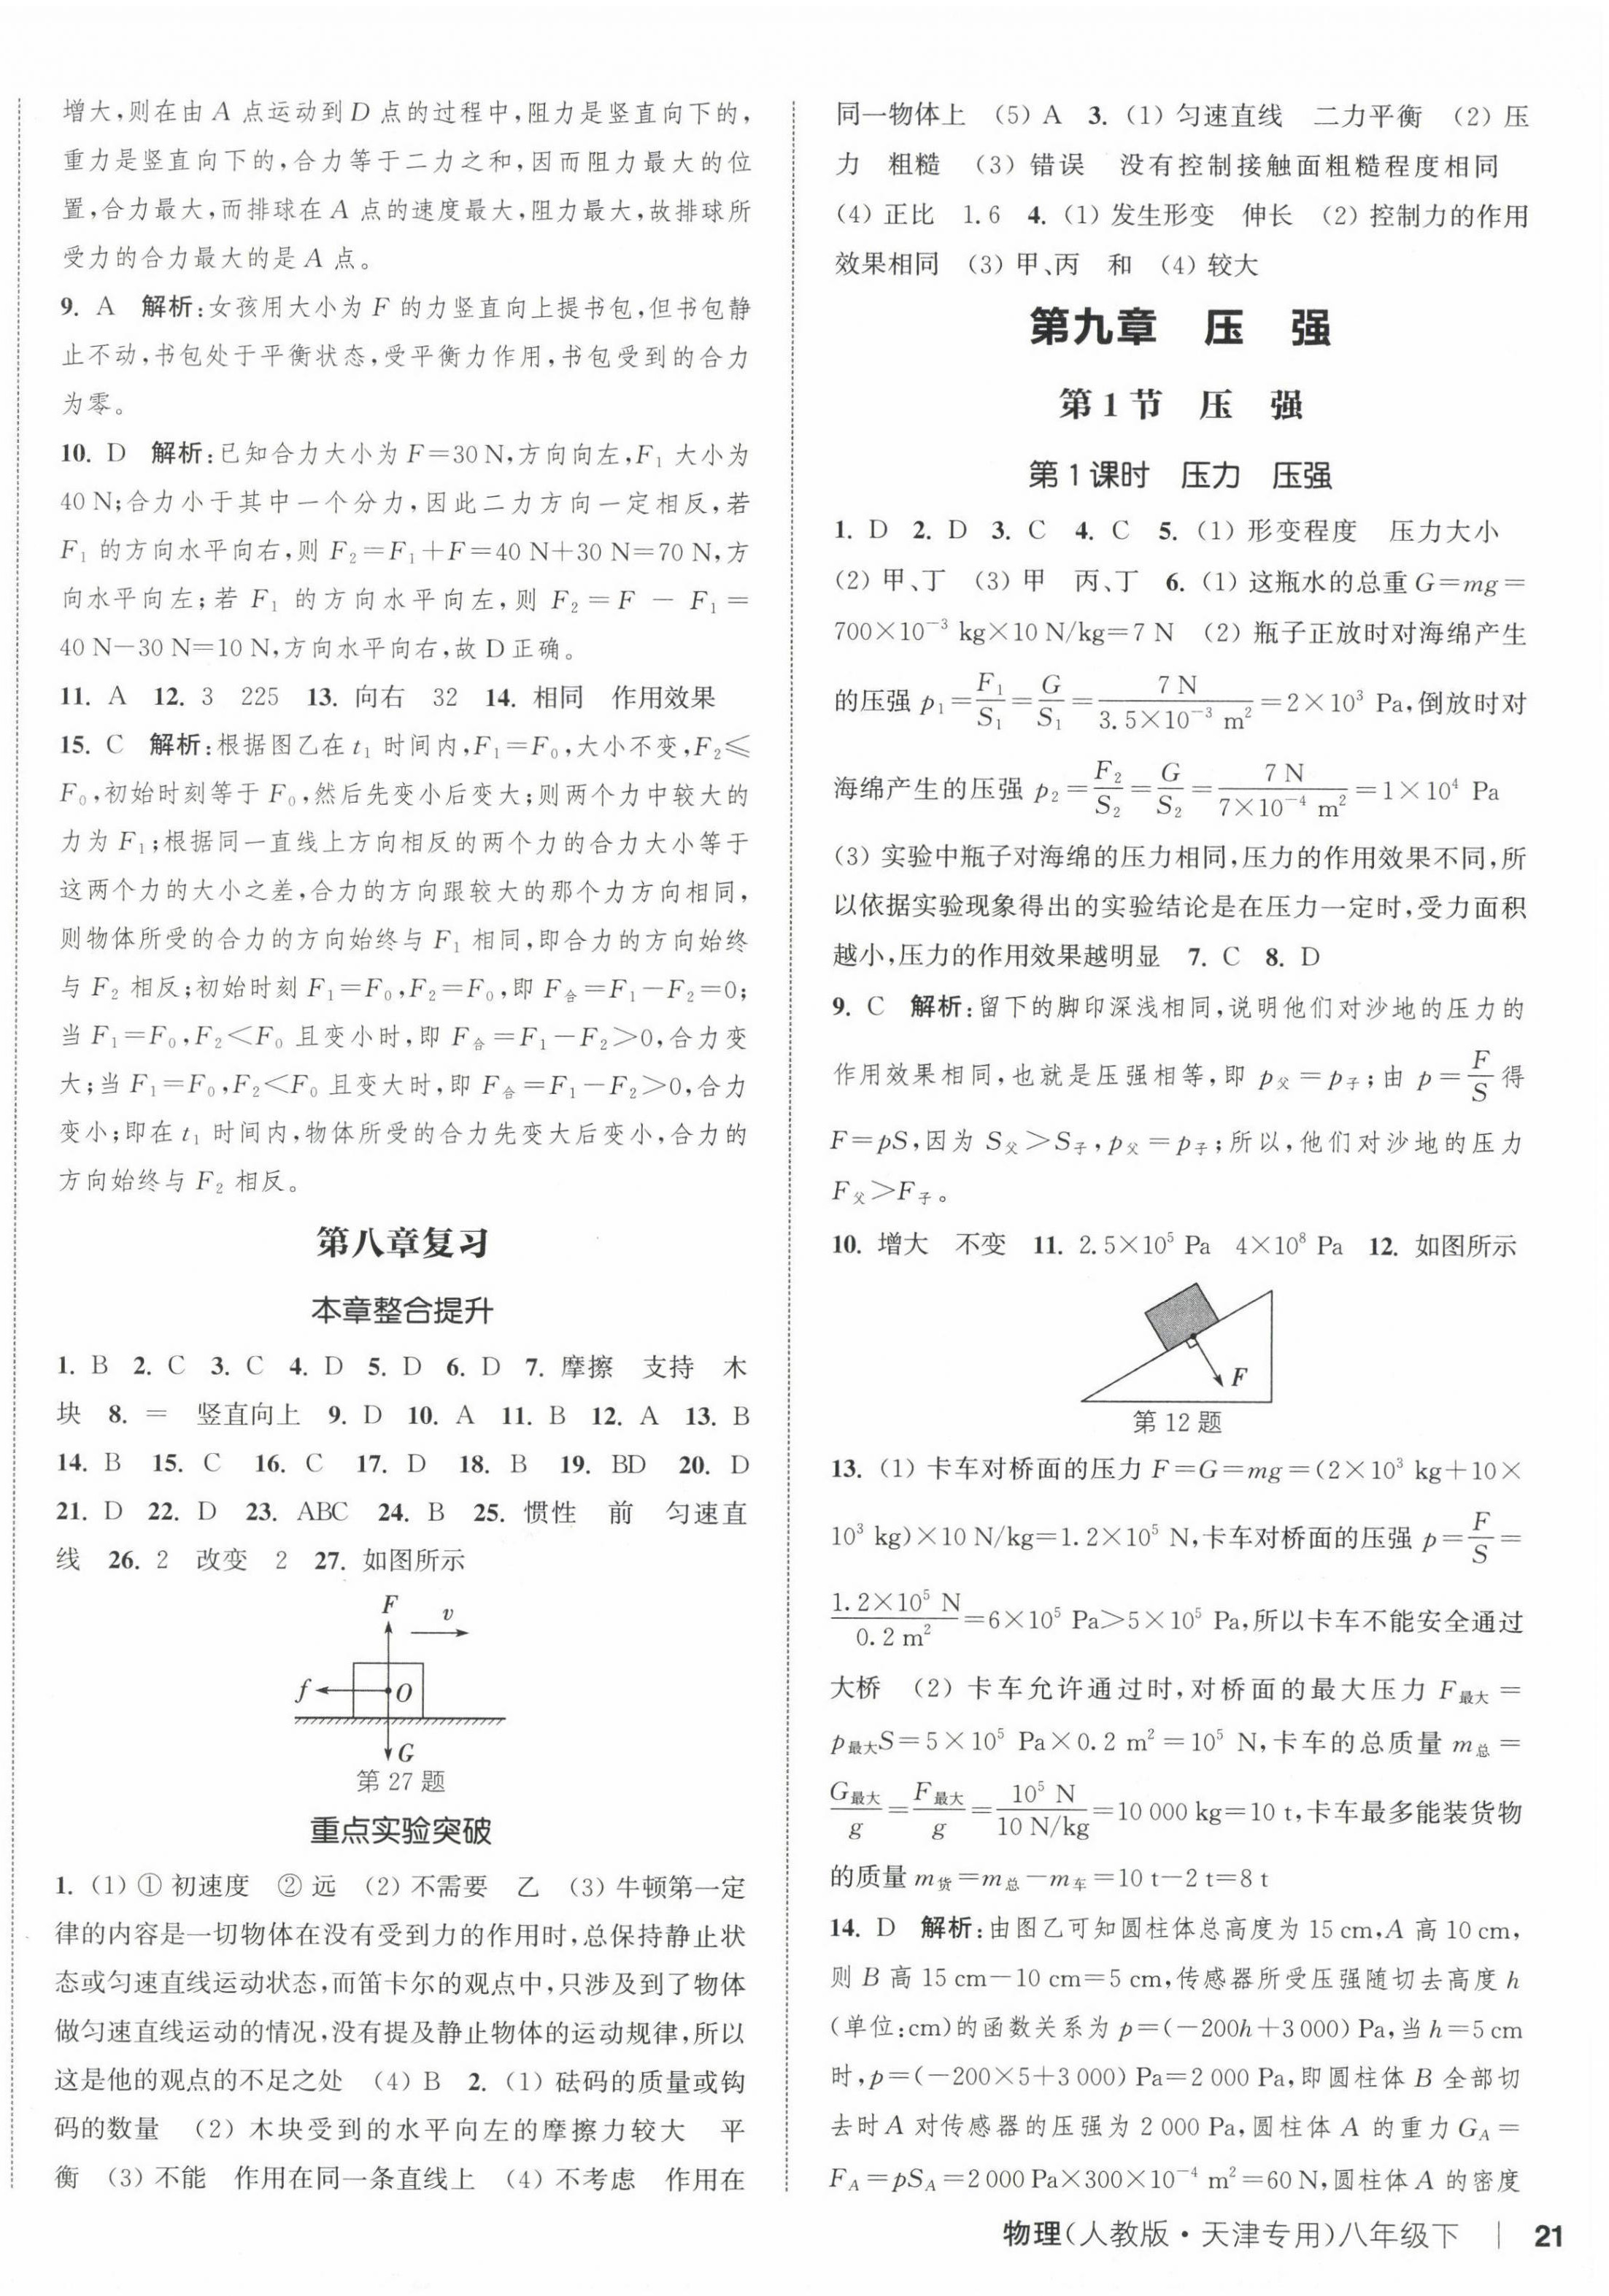 增大,则在由 A 点运动到 D 点的过程中,阻力是竖直向下的,
重力是竖直向下的,合力等于二力之和,因而阻力最大的位
置,合力最大,而排球在 A 点的速度最大,阻力最大,故排球所
受力的合力最大的是 A 点。
9. A 解析:女孩用大小为 F 的力竖直向上提书包,但书包静
止不动,书包处于平衡状态,受平衡力作用,书包受到的合力
为零。
10. D 解析:已知合力大小为 F=30 N,方向向左,F₁ 大小为
40 N;合力小于其中一个分力,因此二力方向一定相反,若
F₁ 的方向水平向右,则 F₂=F₁+F=40 N+30 N=70 N,方
向水平向左;若 F₁ 的方向水平向左,则 F₂=F-F₁=
40 N-30 N=10 N,方向水平向右,故 D 正确。
11. A 12. 3 225 13. 向右 32 14. 相同 作用效果
15. C 解析:根据图乙在 t₁ 时间内,F₁=F₀,大小不变,F₂≤
F₀,初始时刻等于 F₀,然后先变小后变大;则两个力中较大的
力为 F₁;根据同一直线上方向相反的两个力的合力大小等于
这两个力的大小之差,合力的方向跟较大的那个力方向相同,
则物体所受的合力的方向始终与 F₁ 相同,即合力的方向始终
与 F₂ 相反;初始时刻 F₁=F₀,F₂=F₀,即 F合=F₁-F₂=0;
当 F₁=F₀,F₂<F₀ 且变小时,即 F合=F₁-F₂>0,合力变
大;当 F₁=F₀,F₂<F₀ 且变大时,即 F合=F₁-F₂>0,合力
变小;即在 t₁ 时间内,物体所受的合力先变大后变小,合力的
方向始终与 F₂ 相反。
第八章复习
本章整合提升
1. B 2. C 3. C 4. D 5. D 6. D 7. 摩擦 支持 木
块 8. = 竖直向上 9. D 10. A 11. B 12. A 13. B
14. B 15. C 16. C 17. D 18. B 19. BD 20. D
21. D 22. D 23. ABC 24. B 25. 惯性 前 匀速直
线 26. 2 改变 2 27. 如图所示
F v
f O
G
第 27 题
重点实验突破
1. (1) ① 初速度 ② 远 (2) 不需要 乙 (3) 牛顿第一定
律的内容是一切物体在没有受到力的作用时,总保持静止状
态或匀速直线运动状态,而笛卡尔的观点中,只涉及到了物体
做匀速直线运动的情况,没有提及静止物体的运动规律,所以
这是他的观点的不足之处 (4) B 2. (1) 砝码的质量或钩
码的数量 (2) 木块受到的水平向左的摩擦力较大 平
衡 (3) 不能 作用在同一条直线上 (4) 不考虑 作用在
同一物体上 (5) A 3. (1) 匀速直线 二力平衡 (2) 压
力 粗糙 (3) 错误 没有控制接触面粗糙程度相同
(4) 正比 1.6 4. (1) 发生形变 伸长 (2) 控制力的作用
效果相同 (3) 甲、丙 和 (4) 较大
第九章 压 强
第 1 节 压 强
第 1 课时 压力 压强
1. D 2. D 3. C 4. C 5. (1) 形变程度 压力大小
(2) 甲、丁 (3) 甲 丙、丁 6. (1) 这瓶水的总重 G=mg=
700×10⁻³ kg×10 N/kg=7 N (2) 瓶子正放时对海绵产生
的压强 p₁=F₁/S₁=G/S₁=7 N/(3.5×10⁻³ m²)=2×10³ Pa,倒放时对
海绵产生的压强 p₂=F₂/S₂=G/S₂=7 N/(7×10⁻⁴ m²)=1×10⁴ Pa
(3) 实验中瓶子对海绵的压力相同,压力的作用效果不同,所
以依据实验现象得出的实验结论是在压力一定时,受力面积
越小,压力的作用效果越明显 7. C 8. D
9. C 解析:留下的脚印深浅相同,说明他们对沙地的压力的
作用效果相同,也就是压强相等,即 p父=p子;由 p=F/S 得
F=pS,因为 S父>S子,p父=p子;所以,他们对沙地的压力
F父>F子。
10. 增大 不变 11. 2.5×10⁵ Pa 4×10⁸ Pa 12. 如图所示
F
第 12 题
13. (1) 卡车对桥面的压力 F=G=mg=(2×10³ kg+10×
10³ kg)×10 N/kg=1.2×10⁵ N,卡车对桥面的压强 p=F/S=
1.2×10⁵ N/0.2 m²=6×10⁵ Pa>5×10⁵ Pa,所以卡车不能安全通过
大桥 (2) 卡车允许通过时,对桥面的最大压力 F最大=
p最大S=5×10⁵ Pa×0.2 m²=10⁵ N,卡车的总质量 m总=
G最大/g=F最大/g=10⁵ N/(10 N/kg)=10 000 kg=10 t,卡车最多能装货物
的质量 m货=m总-m车=10 t-2 t=8 t
14. D 解析:由图乙可知圆柱体总高度为 15 cm,A 高 10 cm,
则 B 高 15 cm-10 cm=5 cm,传感器所受压强随切去高度 h
(单位:cm)的函数关系为 p=(-200h+3 000) Pa,当 h=5 cm
时,p=(-200×5+3 000) Pa=2 000 Pa,即圆柱体 B 全部切
去时 A 对传感器的压强为 2 000 Pa,圆柱体 A 的重力 G_A=
F_A=pS_A=2 000 Pa×300×10⁻⁴ m²=60 N,圆柱体 A 的密度
物理(人教版·天津专用)八年级下 | 21